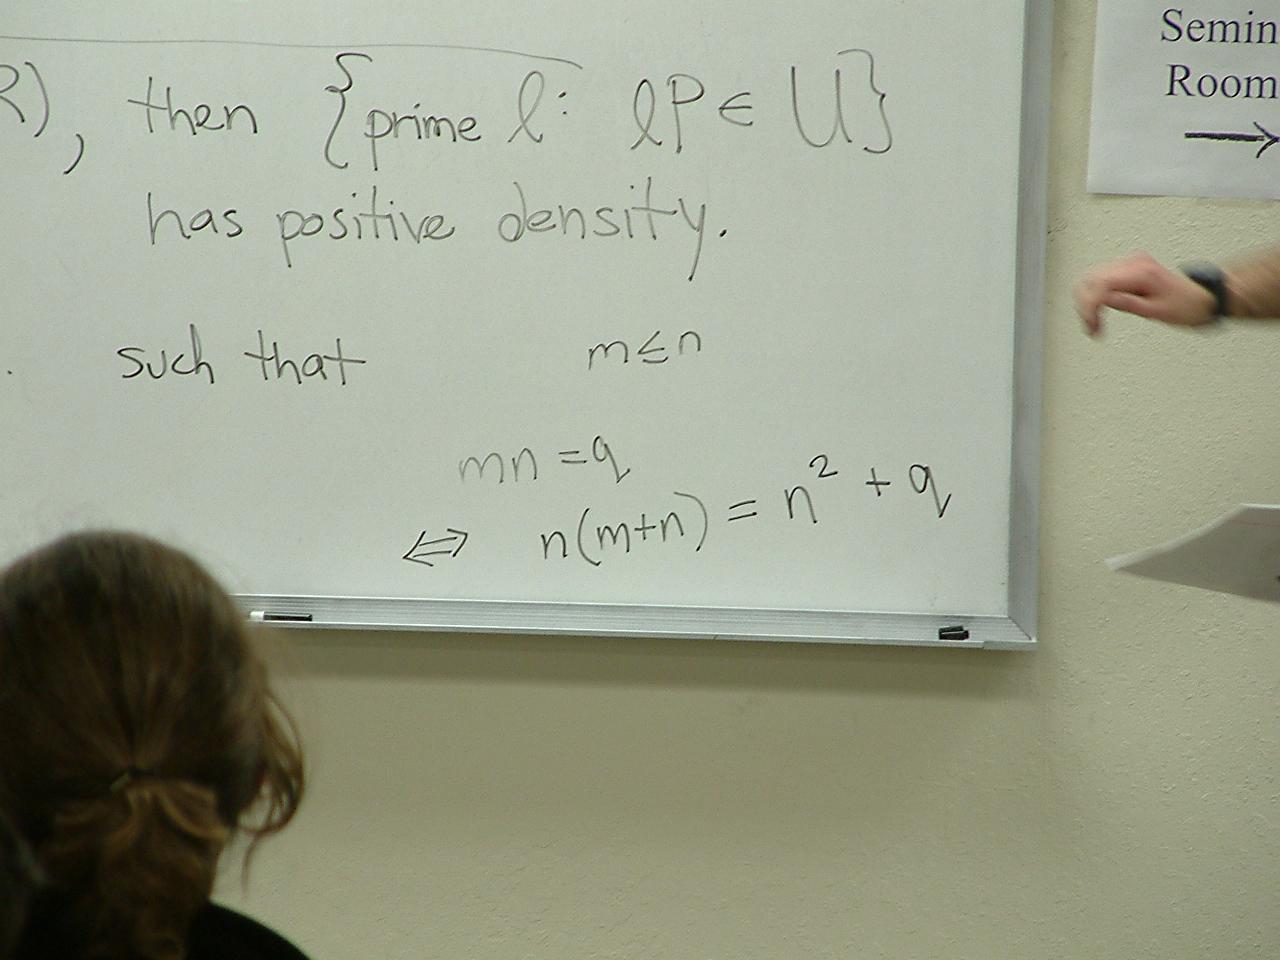 R), then {prime ℓ: ℓP ∈ U}
has positive density.
such that m ≤ n
mn = q
⇔ n(m+n) = n² + q
Room
→